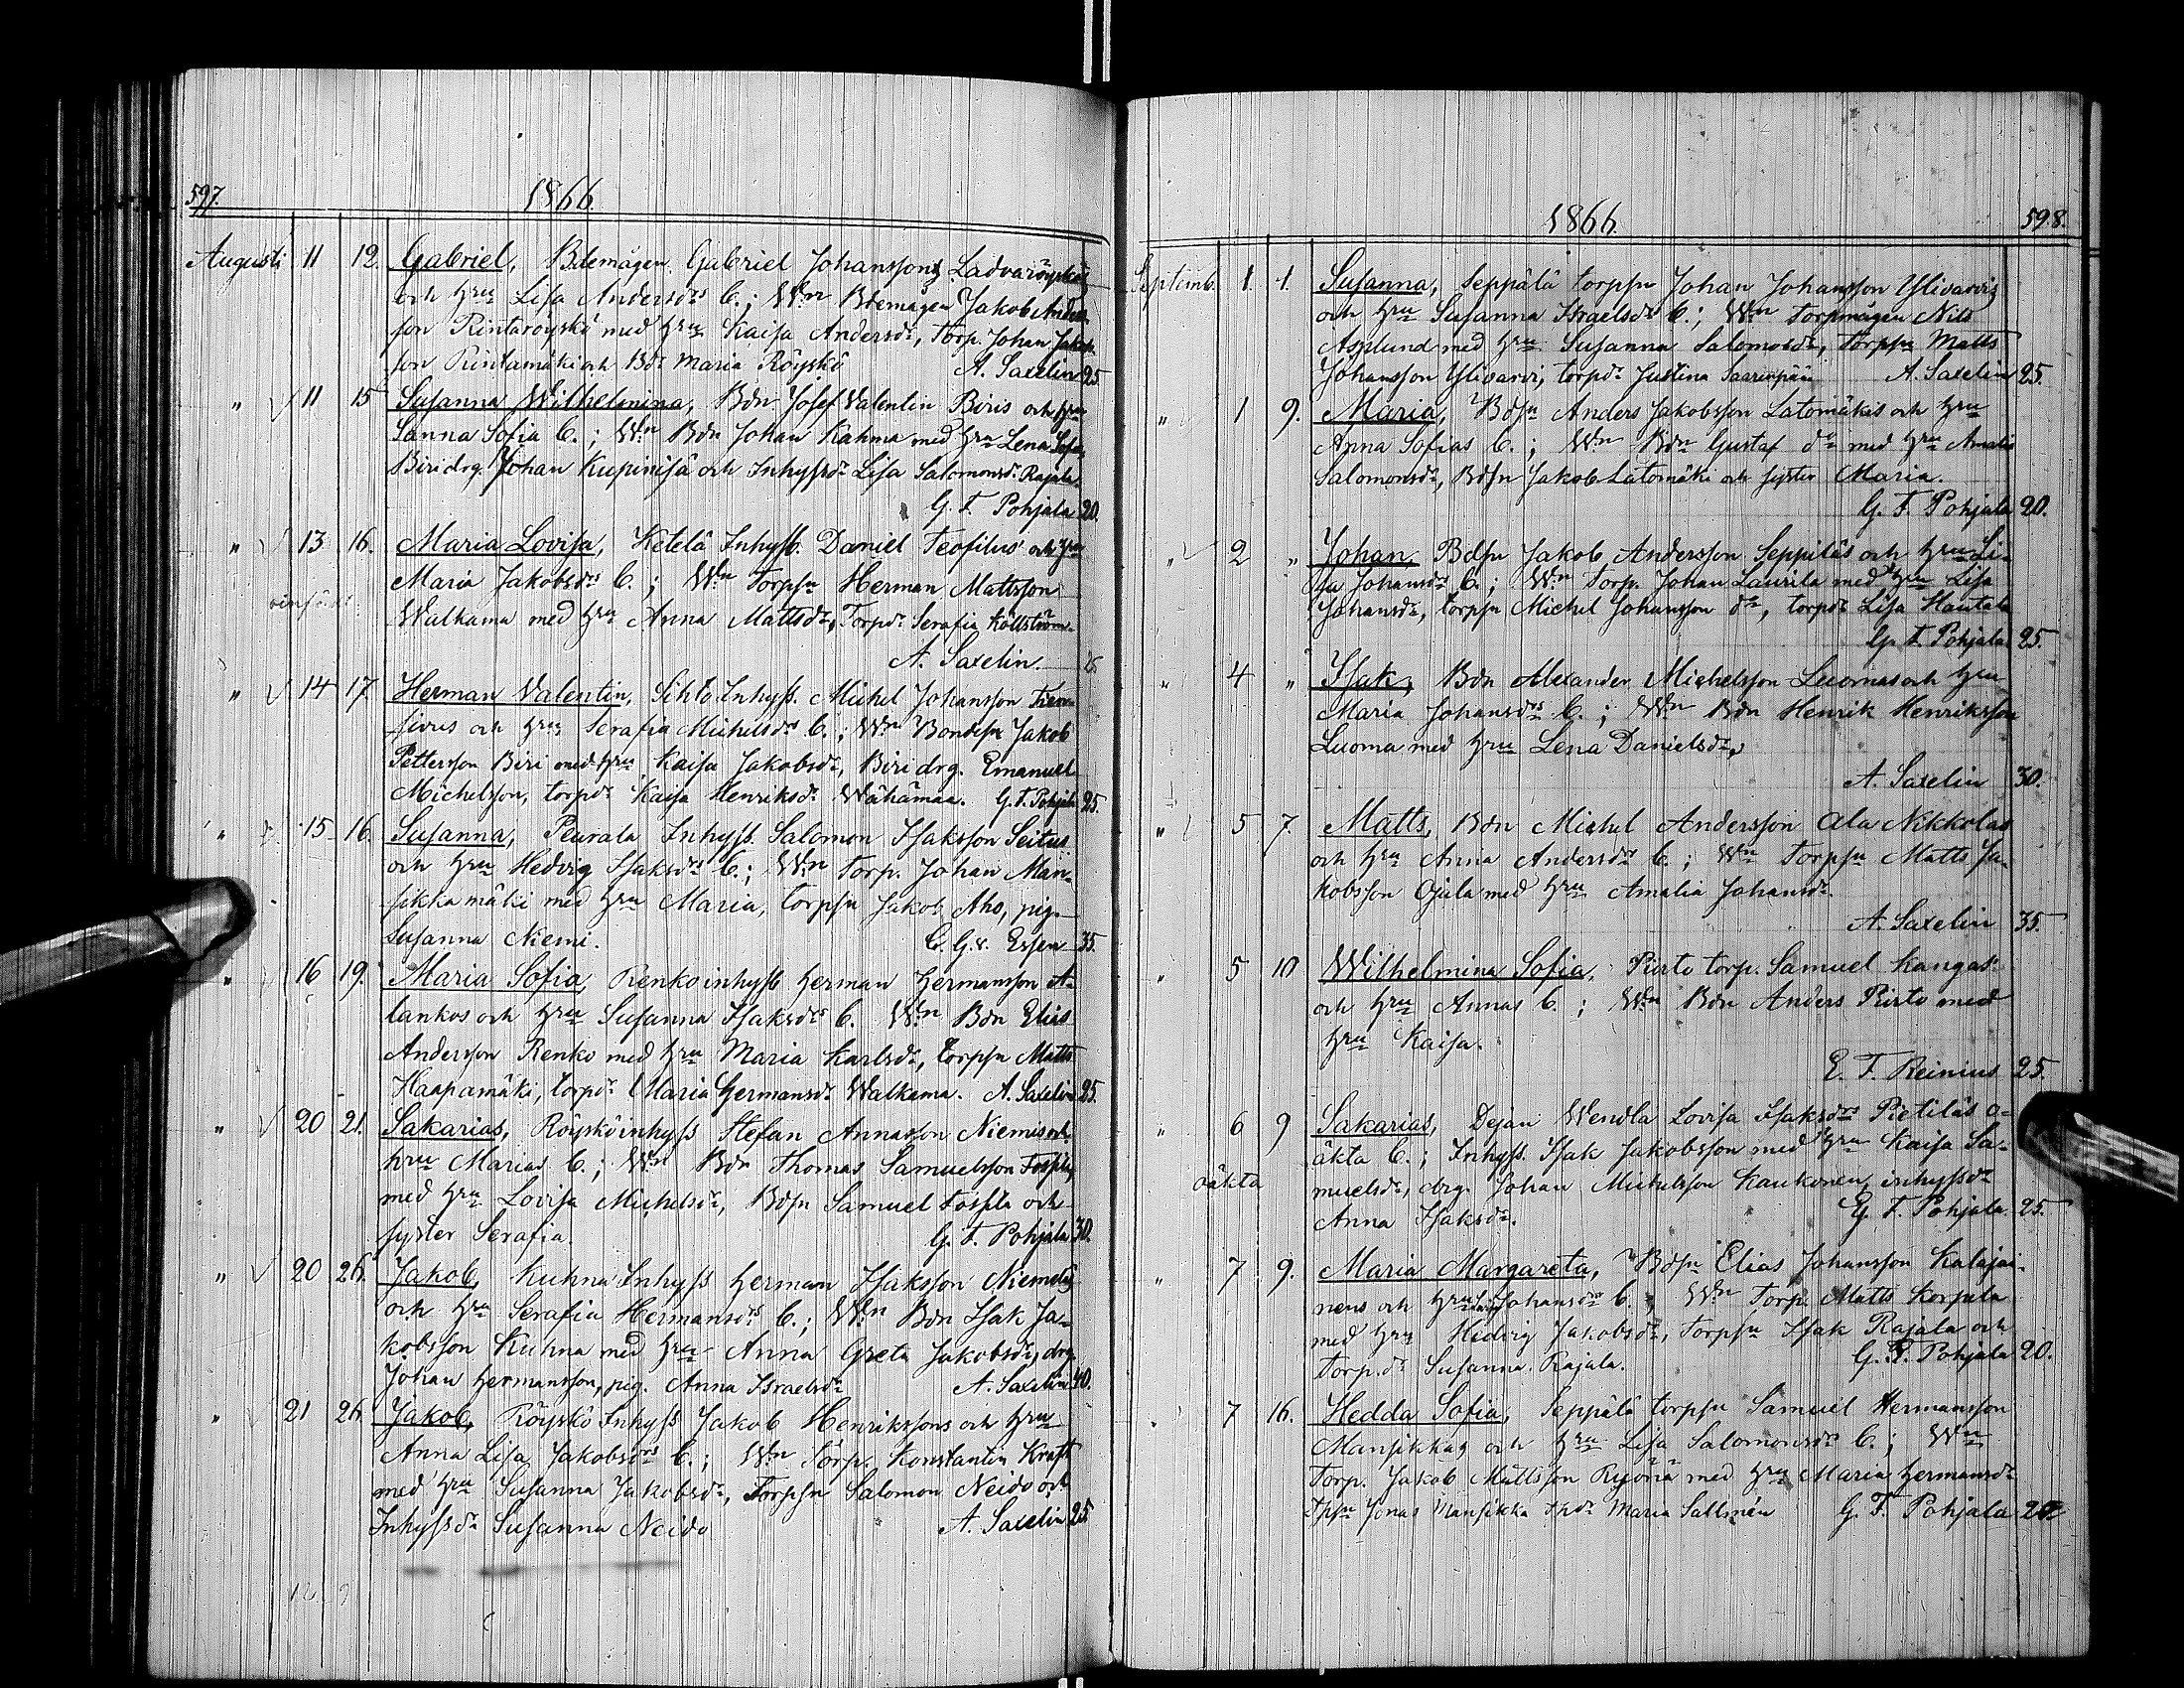 597.
1866.
Augusti 11 12 Gabriel, Bdemågen Gabriel Johanssons Ladvaröyskös
och hru Lisa Andersdrs b.; Wn Bdemågen Jakob Anders
son Rintaröyskö med hru Kaisa Andersdr, Torp. Johan Jakob
son Rintamäki och Bdr Maria Röyskö A. Saxelin 25.
" 11 15 Susanna Wilhelmina, Bdn Josef Valentin Biris och hru
Sanna Sofia b.; Wn Bdn Johan Kahma med hru Lena Sofia,
Biri drg. Johan Kupinisä och Inhyssdr Lisa Salomonsdr Rajala.
G. F. Pohjala 20.
" 13 16. Maria Lovisa, Ketelä Inhyss. Daniel Teofilus och hru
Maria Jakobsdrs b.; Wn Torpsn Herman Mattsson
Walkama med hru Anna Mattsdr, Torpdr Serafia Källström.
A. Saxelin.
" 14 17. Herman Valentin, Sihto Inhyss. Michel Johansson
och hrus Serafia Michelsdrs b.; Wn Bondesn Jakob
Pettersson Biri med hru Kaisa Jakobsdr, Biri drg. Emanuel
Michelsson, torpdr Kaisa Henriksdr Wähämaa. G. F. Pohjala 25.
" 15 16. Susanna, Peurala Inhyss. Salomon Isaksson Seitus
och hru Hedvig Isaksdrs b.; Wn Torp. Johan Man-
sikkamäki med hru Maria, torpsn Jakob Aho, pig.
Susanna Niemi. C. G. v. Essen 35.
" 16 19. Maria Sofia, Renko inhyss Herman Hermansson A-
lankos och hru Susanna Isaksdrs b. Wn Bdn Elias
Andersson Renko med hru Maria Karlsdr, torpsn Matts
Haapamäki, torpdr Maria Hermansdr Walkama. A. Saxelin 25.
" 20 21. Sakarias, Röyskö inhyss Stefan Annasson Niemis och
hru Marias b.; Wn Bdn Thomas Samuelsson Tospila
med hru Lovisa Michelsdr, Bdsn Samuel Tospila och
syster Serafia. G. F. Pohjala 30.
" 20 26. Jakob, Kuhna Inhyss Herman Isaksson Niemeläs
och hru Serafia Hermansdrs b.; Wn Bdn Isak Ja-
kobsson Kuhna med hru Anna Greta Jakobsdr, drg.
Johan Hermansson, pig. Anna Israelsdr A. Saxelin 40.
" 21 26. Jakob, Röyskö Inhyss Jakob Henrikssons och hru
Anna Lisa Jakobsdrs b.; Wn Torp. Konstantin Kraft
med hru Susanna Jakobsdr, Torpsn Salomon Neido och
Inhyssdr Susanna Neido A. Saxelin 25.
1866.
598.
Septemb. 1. 1. Susanna, Seppälä torpsn Johan Johansson Ylivarvis
och hru Susanna Israelsdrs b.; Wn Torpmågen Nils
Asplund med hru Susanna Salomonsdr, Torpsn Matts
Johansson Ylivarvi, torpdr Justina Saarenpää A. Saxelin 25.
" 1 9. Maria, Bdsn Anders Jakobsson Latomäkis och hru
Anna Sofias b.; Wn Bdn Gustaf do med hru Amalia
Salomonsdr, Bdsn Jakob Latomäki och syster Maria.
G. F. Pohjala 20.
" 2 " Johan, Bdsn Jakob Andersson Seppiläs och hru Li-
sa Johansdrs b.; Wn Torp. Johan Laurila med hru Lisa
Johansdr, torpsn Michel Johansson do, torpdr Lisa Hautala
G. F. Pohjala 25.
" 4 " Isak, Bdn Alexander Michelsson Luomas och hru
Maria Johansdrs b.; Wn Bdn Henrik Henriksson
Luoma med hru Lena Danielsdr,
A. Saxelin 30.
" 5 7. Matts, Bdn Michel Andersson Ala Nikkolas
och hru Anna Andersdrs b.; Wn Torpsn Matts Ja-
kobsson Ojala med hru Amalia Johansdr.
A. Saxelin 35.
" 5 10 Wilhelmina Sofia, Piirto torp. Samuel Kangas
och hru Annas b.; Wn Bdn Anders Piirto med
hru Kaisa.
E. F. Reinius 25.
" 6 9 Sakarias, Dejan Wendla Lovisa Isaksdrs Pietiläs o-
äkta b.; Inhyss. Isak Jakobsson med hru Kaisa Sa-
oäkta
muelsdr, drg. Johan Michelsson Kaukonen, inhyssdr
Anna Isaksdr. G. F. Pohjala. 25.
" 7 9. Maria Margareta, Bdsn Elias Johansson Kalajai-
nens och hru Johansdrs b.; Wn Torp. Matts Korpela
med hru Hedvig Jakobsdr, Torpsn Isak Rajala och
Torp.dr Susanna Rajala. G. F. Pohjala 20.
" 7 16. Hedda Sofia, Seppälä torpsn Samuel Hermansson
Mansikkas och hru Lisa Salomonsdrs b.; Wn
Torp. Jakob Mattsson Ryönä med hru Maria Hermansdr
Tpsn Jonas Mansikka Maria Sallmén G. F. Pohjala 20